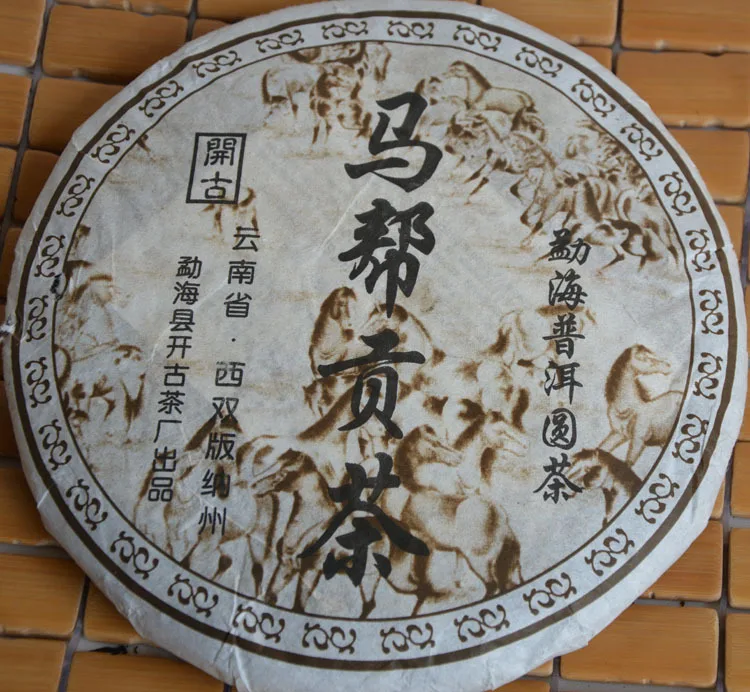 勐海普洱圆茶
马帮贡茶
開古
云南省·西双版纳州
勐海县开古茶厂出品